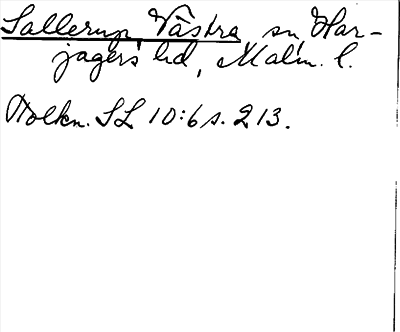 Sallerup, Västra, sn, Har-
jagers hd, Malm. l.
Tolkn. SL 10:6 s. 213.